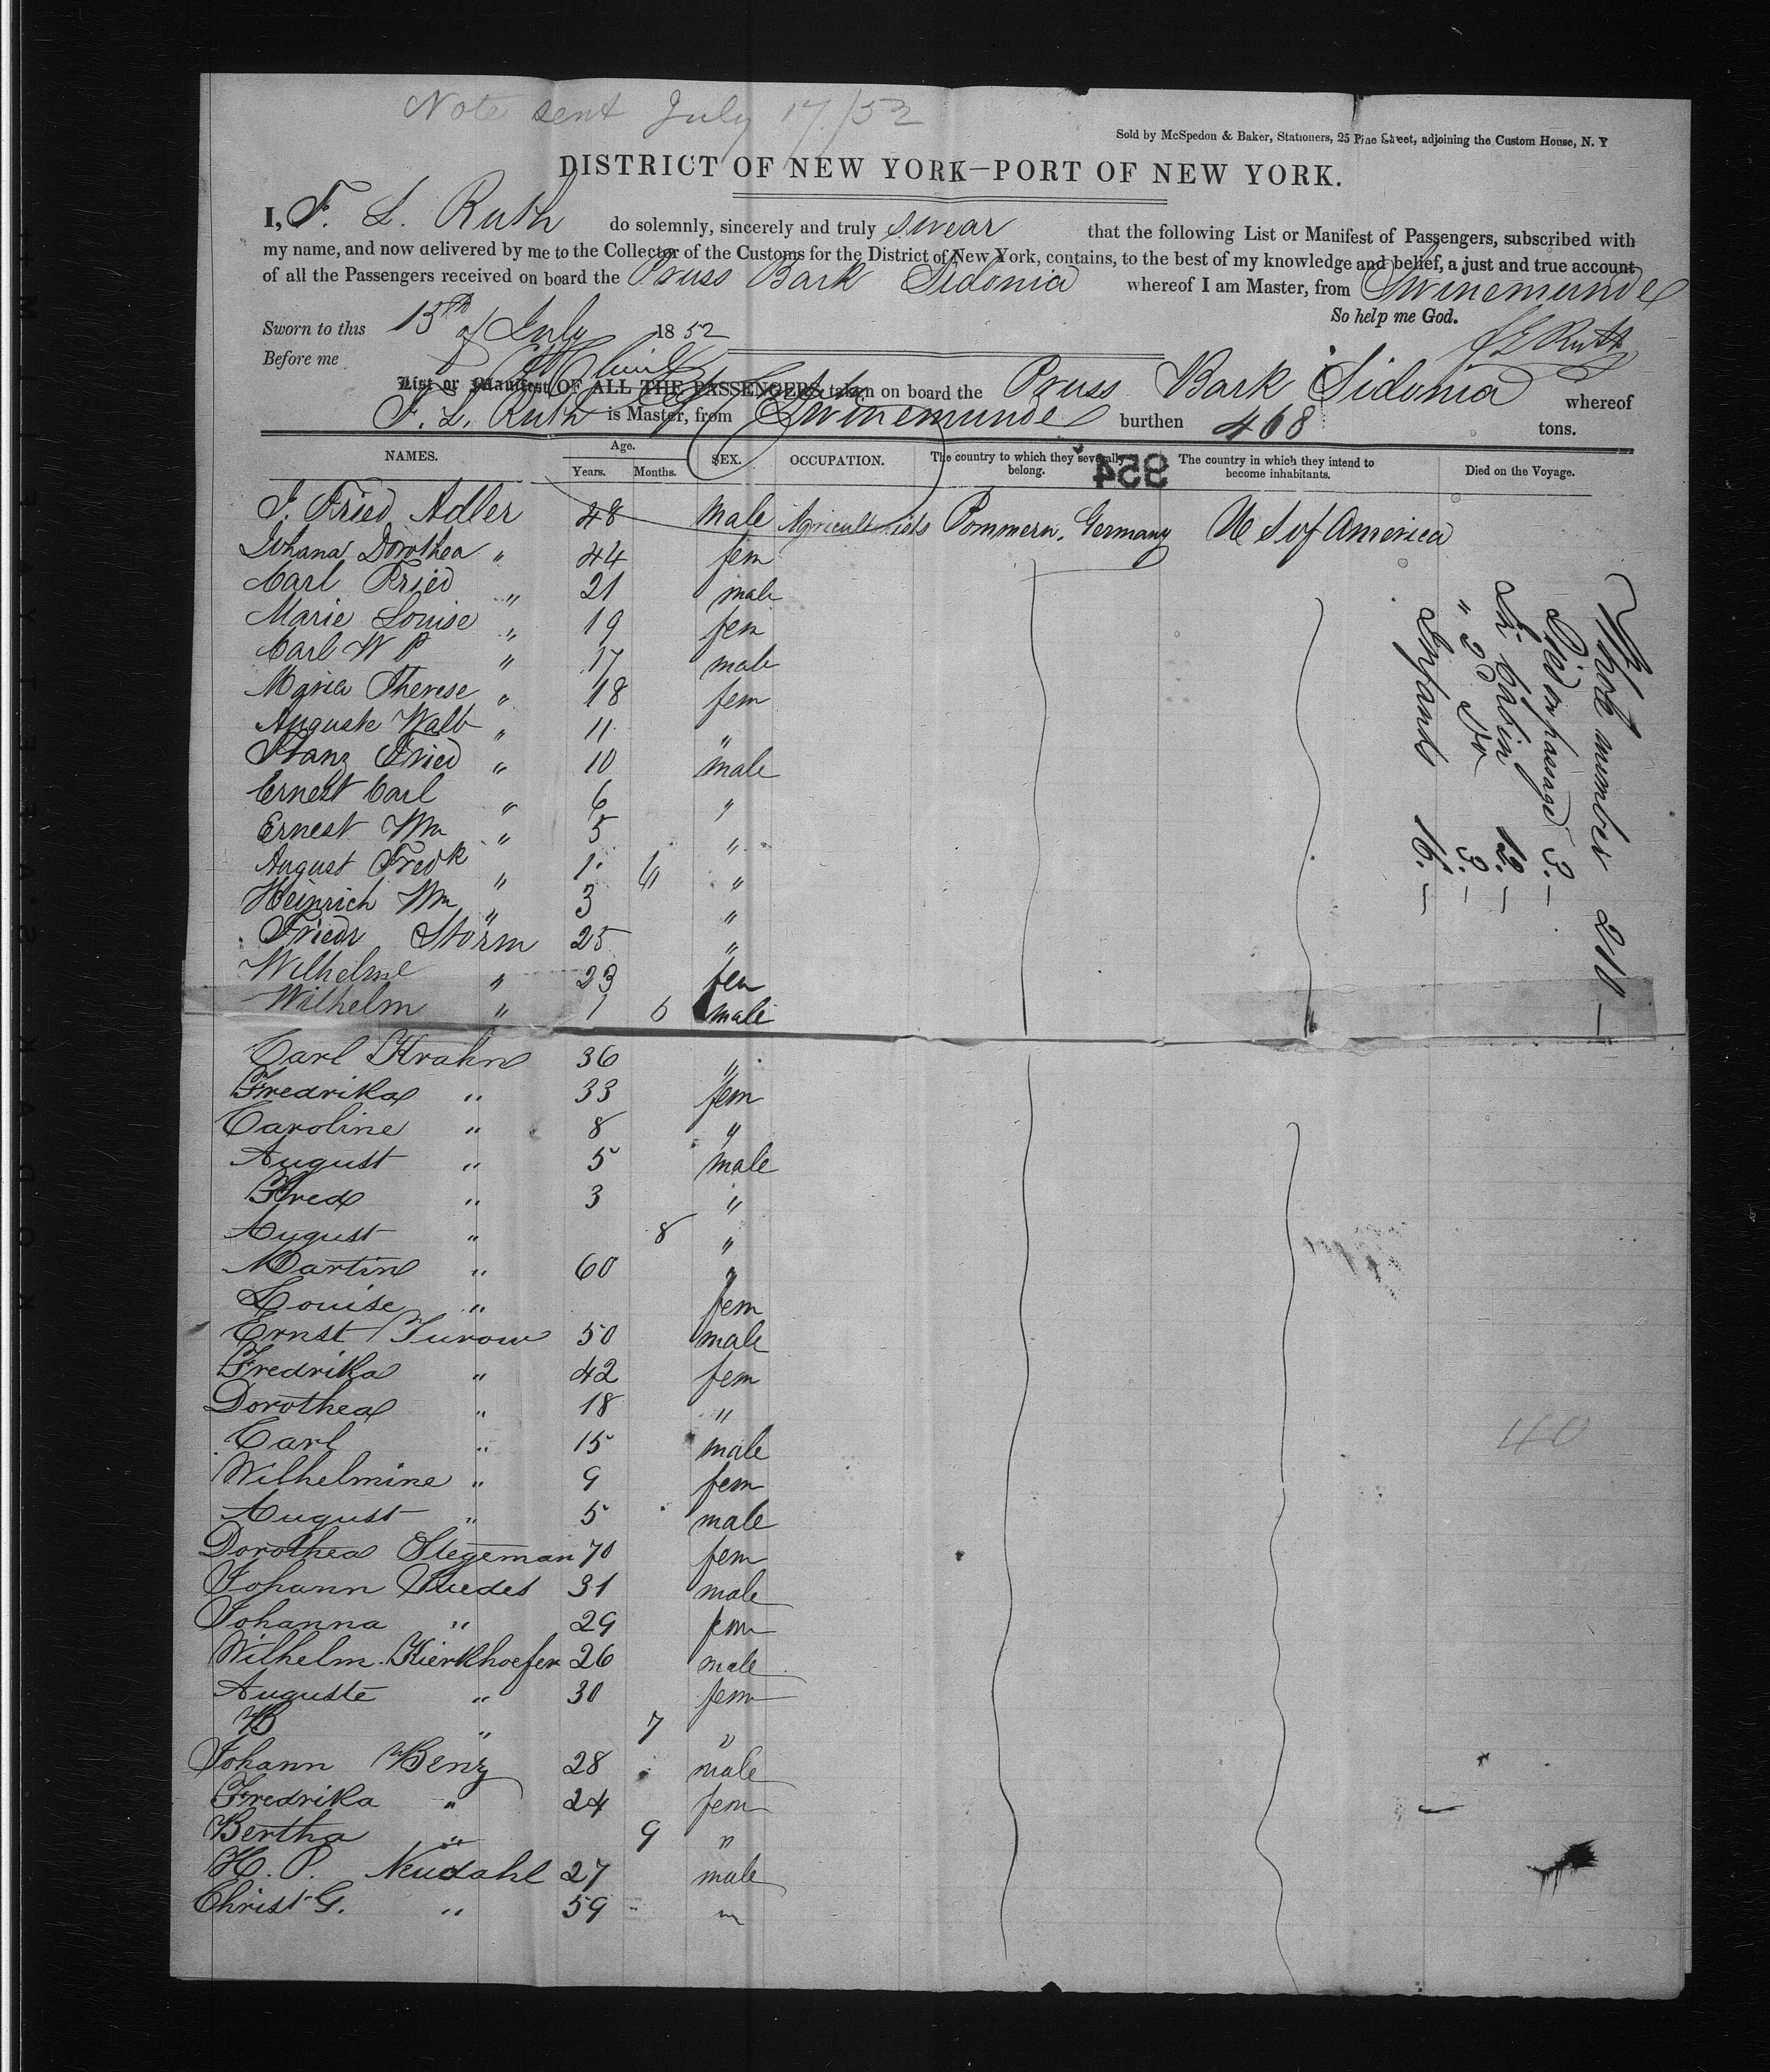 Note sent July 17/52
Sold by McSpedon & Baker, Stationers, 25 Pine Street, adjoining the Custom House, N. Y
DISTRICT OF NEW YORK—PORT OF NEW YORK.
I, F. L. Ruth do solemnly, sincerely and truly swear that the following List or Manifest of Passengers, subscribed with
my name, and now delivered by me to the Collector of the Customs for the District of New York, contains, to the best of my knowledge and belief, a just and true account
of all the Passengers received on board the Pruss Bark Sidonia whereof I am Master, from Swinemunde
So help me God.
Sworn to this 15th of July 1852
F L Ruth
Before me
List or Manifest OF ALL THE PASSENGERS taken on board the Pruss Bark Sidonia whereof
F. L. Ruth is Master, from Swinemunde burthen 468 tons.
NAMES. Age. Years. Months. SEX. OCCUPATION. The country to which they severally belong. The country in which they intend to become inhabitants. Died on the Voyage.
354
J. Fried Adler 48 male Agriculturists Pommern, Germany U S of America
Johana Dorothea " 44 fem
Carl Fried " 21 male
Marie Louise " 19 fem
Carl W P " 17 male
Maria Therese " 18 fem
Auguste Walb " 11 "
Franz Fried " 10 male
Ernest Carl " 6 "
Ernest Wm " 5 "
August Fredk " 1 "
Heinrich Wm " 3 "
Friedr Storm 25 "
Wilhelme " 23 fem
Wilhelm " 1 6 male
Carl Krahn 36 "
Fredrika " 33 fem
Caroline " 8 "
August " 5 male
Fred " 3 "
August " 8 "
Martin " 60 "
Louise " fem
Ernst Turow 50 male
Fredrika " 42 fem
Dorothea " 18 "
Carl " 15 male
Wilhelmine " 9 fem
August " 5 male
Dorothea Stegeman 70 fem
Johann 31 male
Johanna " 29 fem
Wilhelm Kierkhoefer 26 male
Auguste " 30 fem
B " 7 "
Johann Benz 28 male
Fredrika " 24 fem
Bertha " 9 "
H. P. Neudahl 27 male
Christ G. " 59 "
Whole number 211 —
Died on passage 3. —
In Cabin 12. —
" 2d Do 3. —
Infants 16. —
40